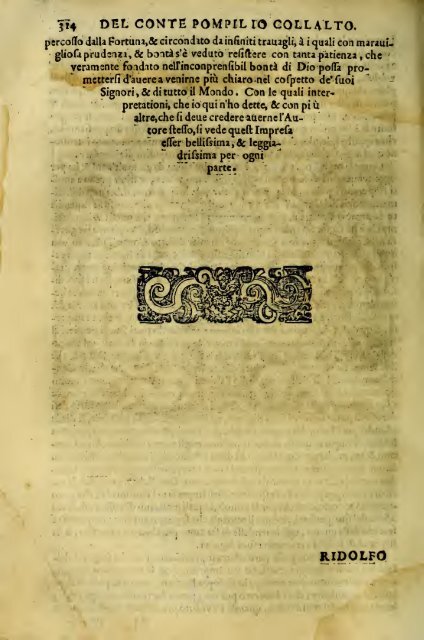 314 DEL CONTE POMPILIO COLLALTO.
percosso dalla Fortuna, & circondato da infiniti trauagli, à i quali con maraui-
gliosa prudenza, & bontà s'è veduto resistere con tanta patienza, che
veramente fondato nell'inconprensibil bontà di Dio possa pro-
mettersi d'auere a venirne più chiaro nel cospetto de' suoi
Signori, & di tutto il Mondo. Con le quali inter-
pretationi, che io qui n'ho dette, & con più
altre, che si deue credere auerne l'Au-
tore stesso, si vede quest Impresa
esser bellissima, & leggia-
drissima per ogni
parte.
RIDOLFO